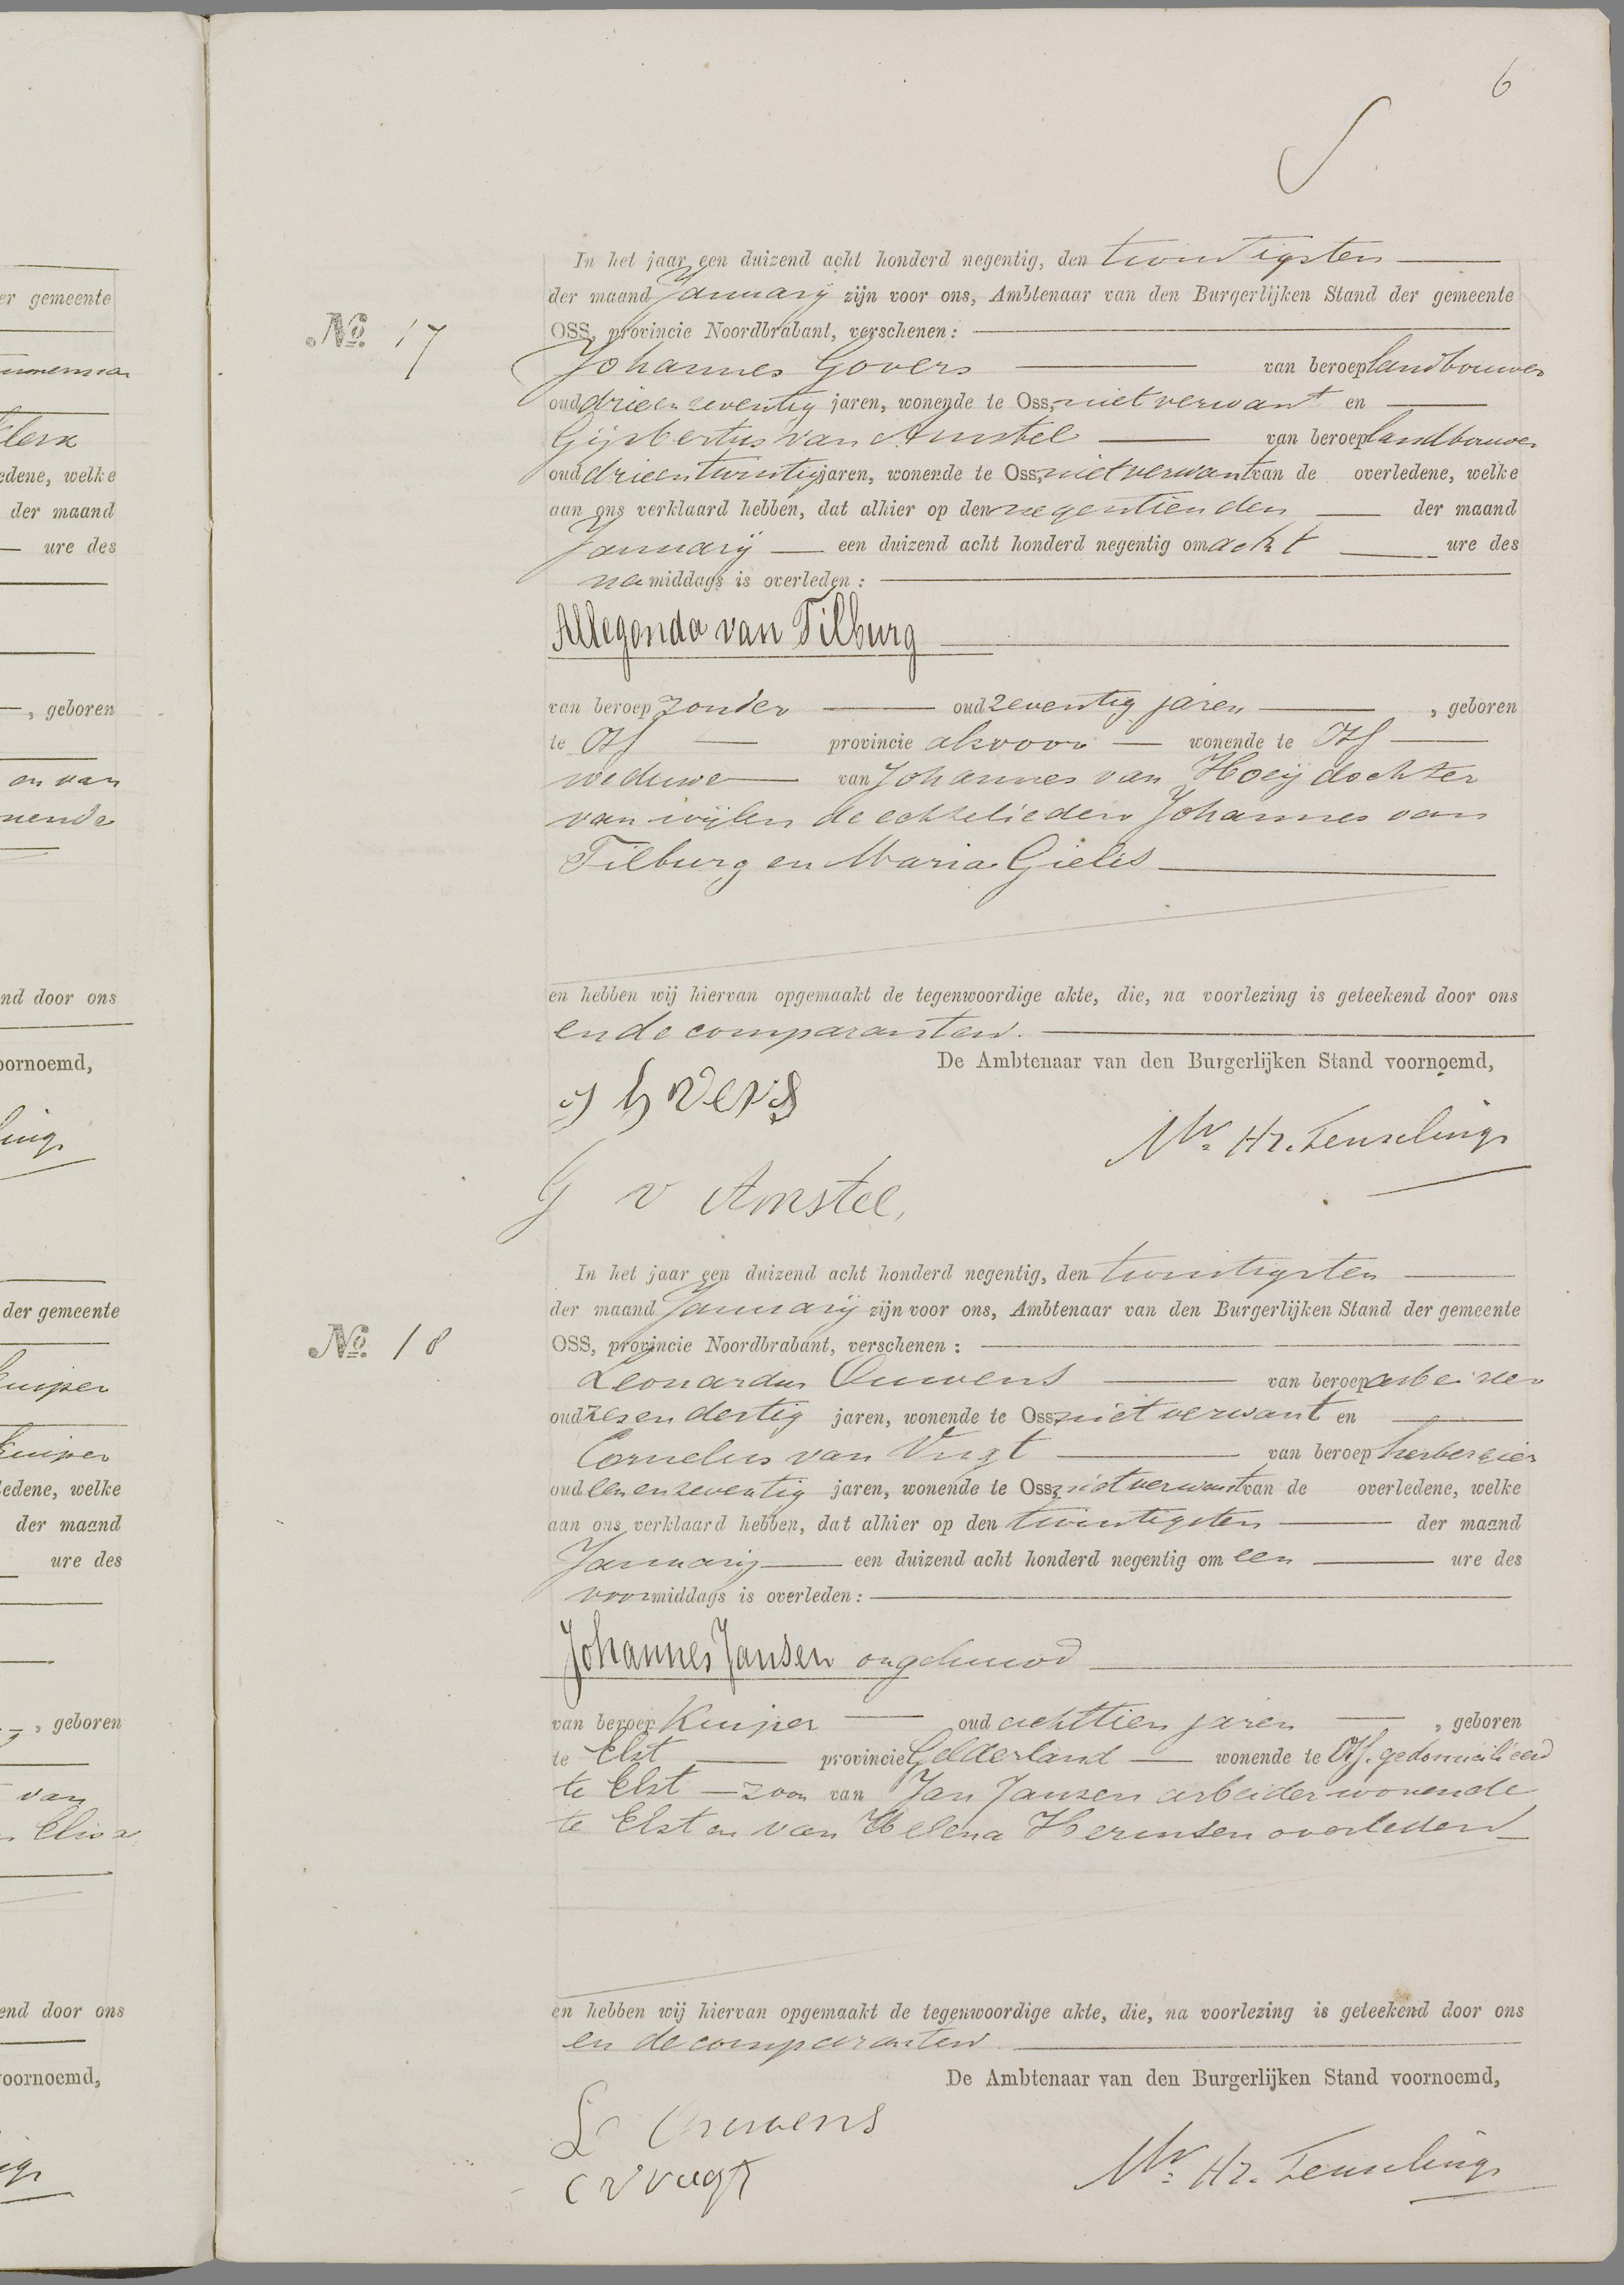 6
er gemeente
Clerk
edene, welke
der maand
ure des
, geboren
en van
nende
nd door ons
oornoemd,
ling
der gemeente
kuiper
kuiper
ledene, welke
der maand
ure des
, geboren
van
Elisa
end door ons
voornoemd,
No. 17
In het jaar een duizend acht honderd negentig, den twintigsten
der maand Januarij zijn voor ons, Ambtenaar van den Burgerlijken Stand der gemeente
OSS, provincie Noordbrabant, verschenen:
Johannes Govers van beroep landbouwer
oud drieenzeventig jaren, wonende te Oss, niet verwant en
Gijsbertus van Amstel van beroep landbouwer
oud drieentwintig jaren, wonende te Oss, niet verwant van de overledene, welke
aan ons verklaard hebben, dat alhier op den negentienden der maand
Januarij een duizend acht honderd negentig om acht ure des
namiddags is overleden:
Allegonda van Tilburg
van beroep zonder oud zeventig jaren , geboren
te Oss provincie alsvoor wonende te Oss
weduwe van Johannes van Hoeij dochter
van wijlen de echtelieden Johannes van
Tilburg en Maria Gielis
en hebben wij hiervan opgemaakt de tegenwoordige akte, die, na voorlezing is geteekend door ons
en de comparanten.
De Ambtenaar van den Burgerlijken Stand voornoemd,
G v Amstel,
No. 18
In het jaar een duizend acht honderd negentig, den twintigsten
der maand Januarij zijn voor ons, Ambtenaar van den Burgerlijken Stand der gemeente
OSS, provincie Noordbrabant, verschenen:
Leonardus Ouwens van beroep arbeider
oud zesendertig jaren, wonende te Oss, niet verwant en
Cornelus van Vugt van beroep herbergier
oud eenenzeventig jaren, wonende te Oss, niet verwant van de overledene, welke
aan ons verklaard hebben, dat alhier op den twintigsten der maand
Januarij een duizend acht honderd negentig om een ure des
voormiddags is overleden:
Johannes Jansen ongehuwd
van beroep Kuiper oud achttien jaren , geboren
te Elst provincie Gelderland wonende te Oss. gedomicilieerd
te Elst — zoon van Jan Jansen arbeider wonende
te Elst en van Helena Hermsen overleden
en hebben wij hiervan opgemaakt de tegenwoordige akte, die, na voorlezing is geteekend door ons
en de comparanten
De Ambtenaar van den Burgerlijken Stand voornoemd,
L Ouwens
C v vugt